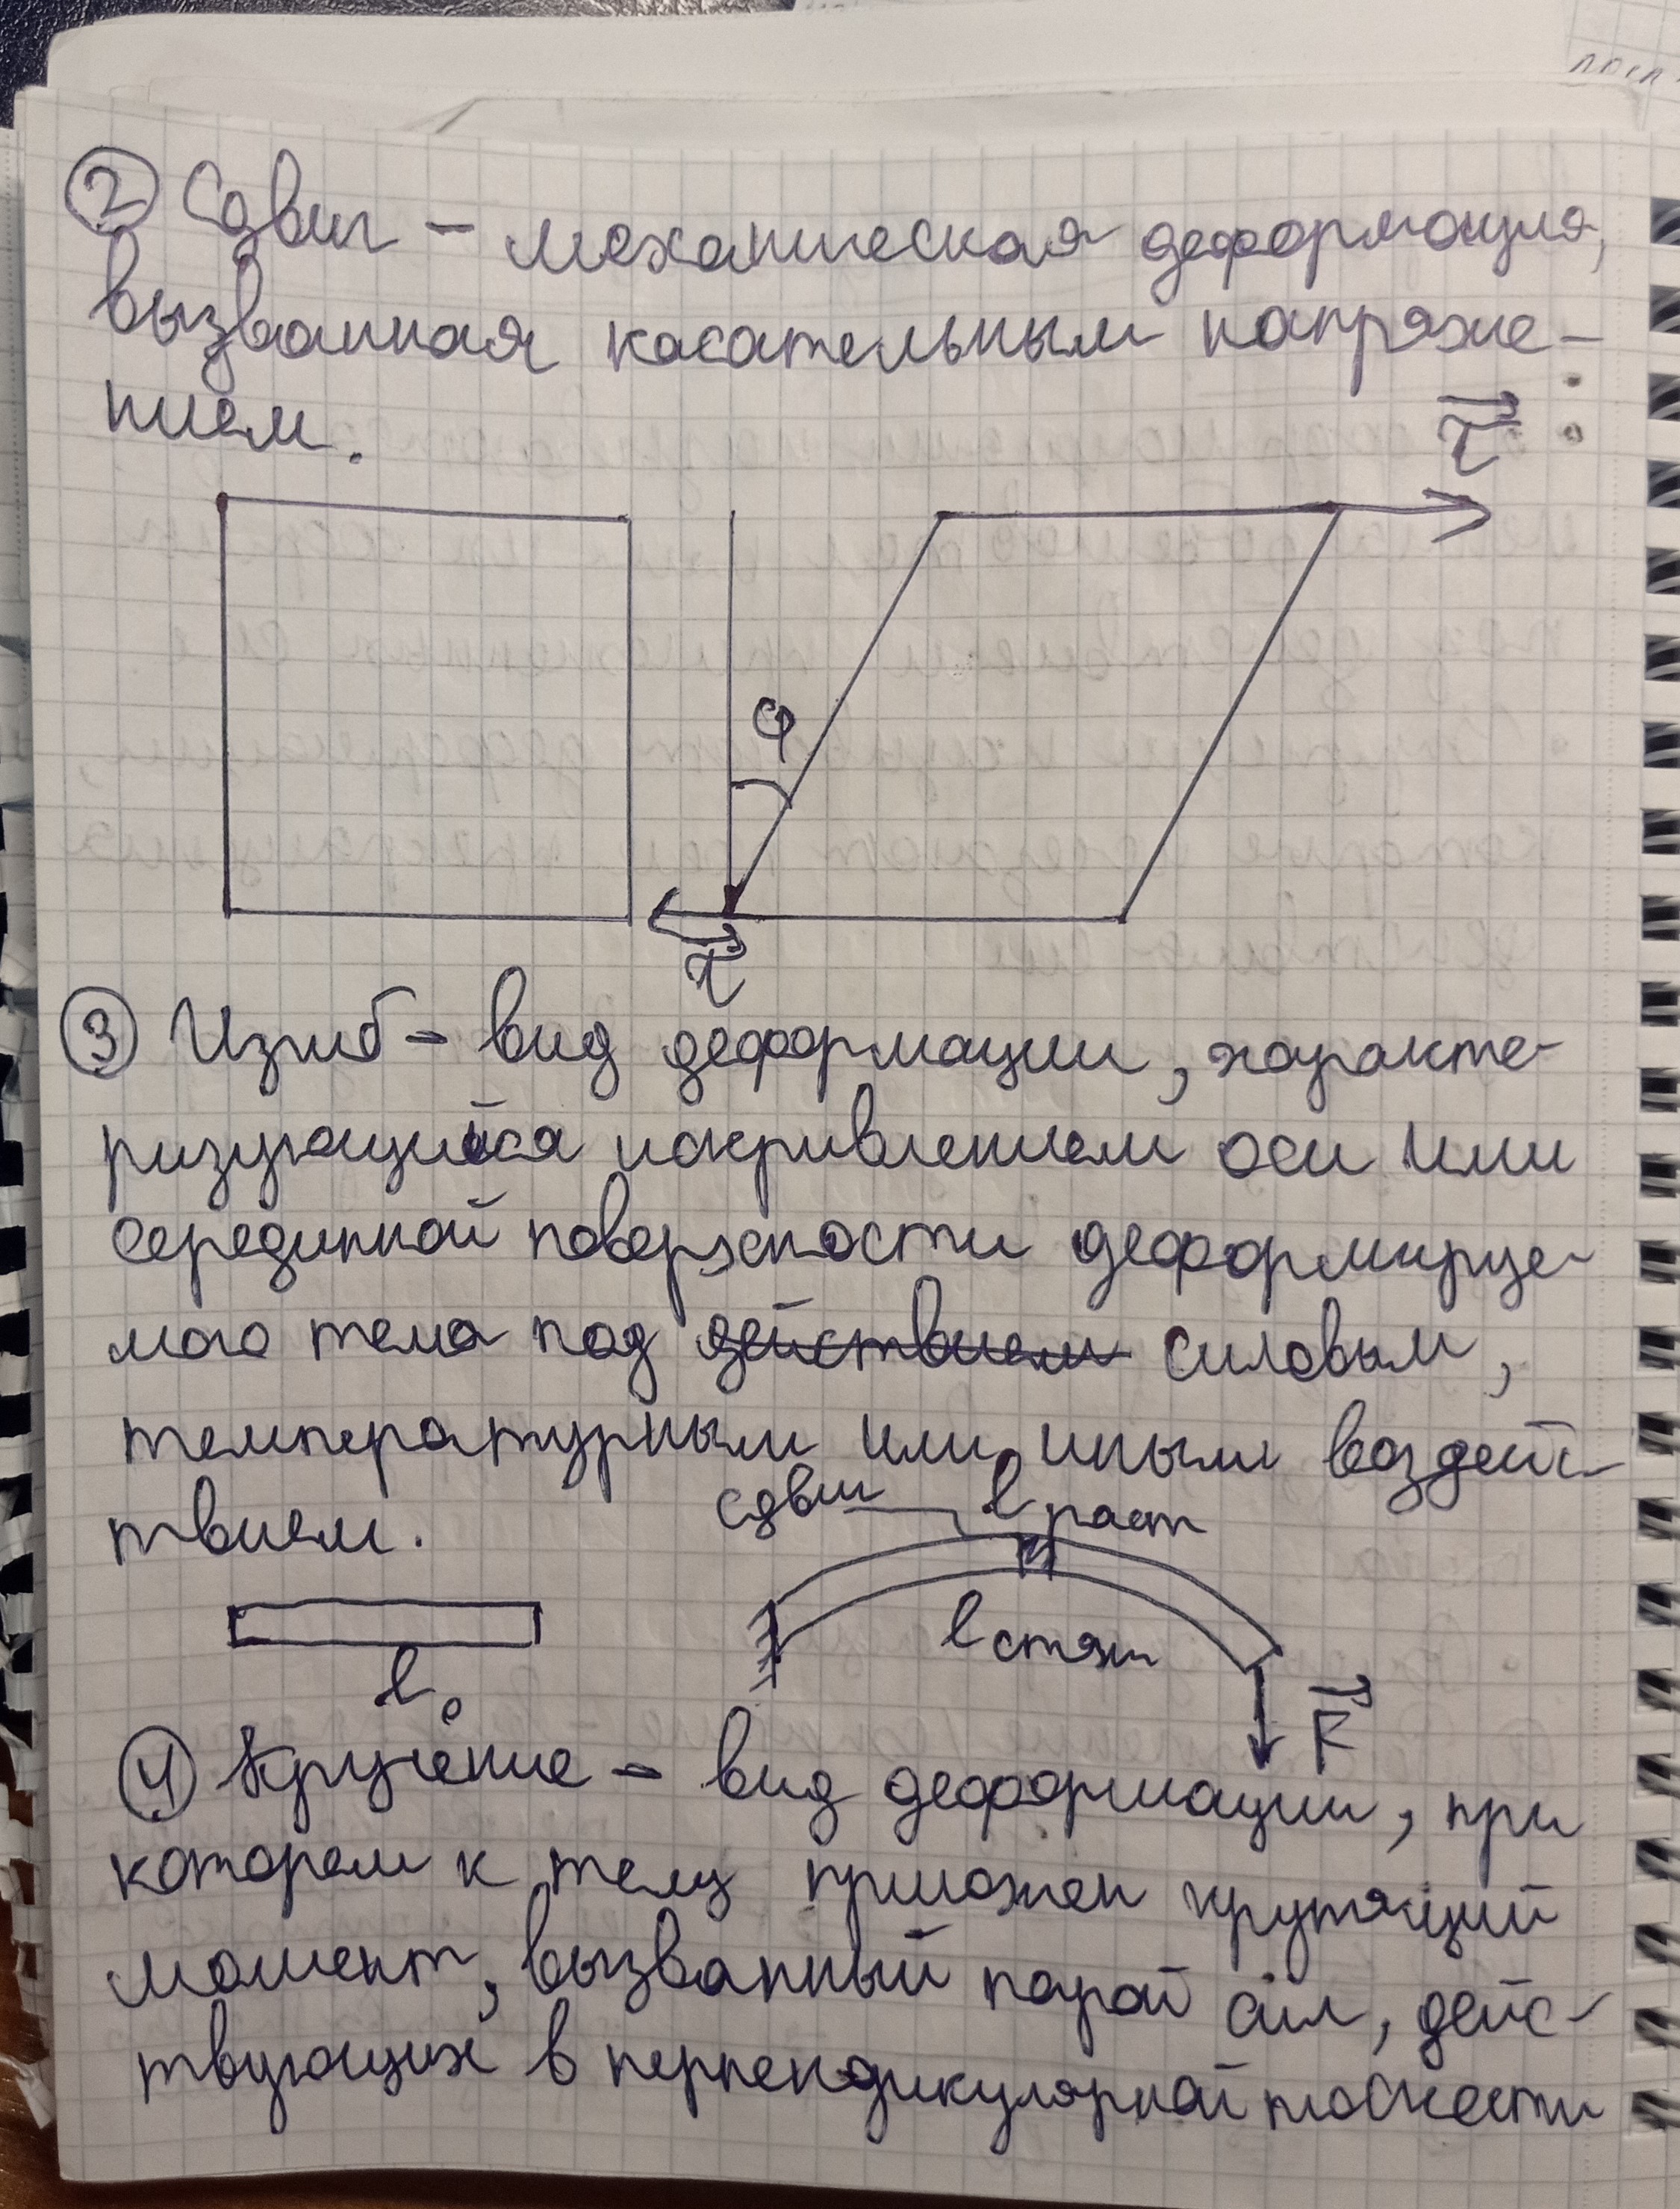 ② Сдвиг – механическая деформация,
вызванная касательным напряже-
нием.
τ
φ
τ
③ Изгиб – вид деформации, характе-
ризующийся искривлением оси или
серединной поверхности деформируе-
мого тела под действием силовым,
температурным или иным воздейс-
твием.
сдвиг l раст
l стяж
l₀
F
④ Кручение – вид деформации, при
котором к телу приложен крутящий
момент, вызванный парой сил, дейс-
твующих в перпендикулярной плоскости